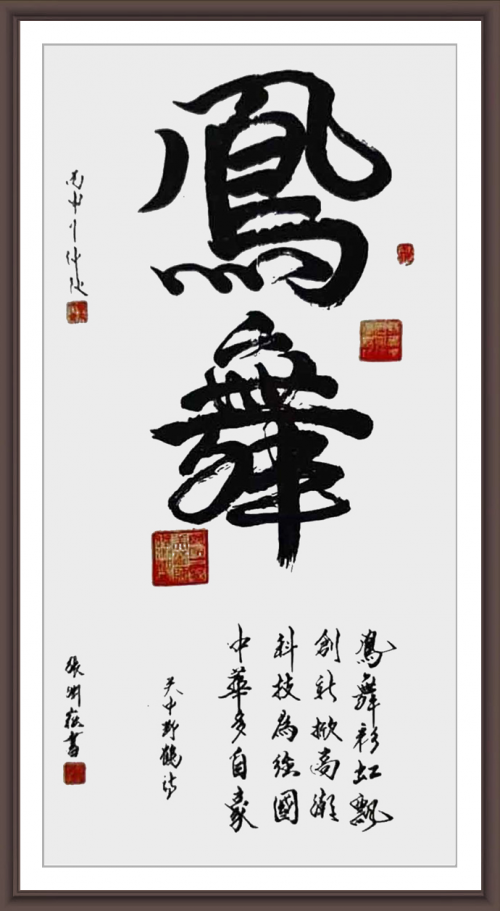 鳳舞
鳳舞彩虹飄
創新掀高潮
科技為強國
中華多自豪
天中野鶴詩
丙申年仲秋
張書